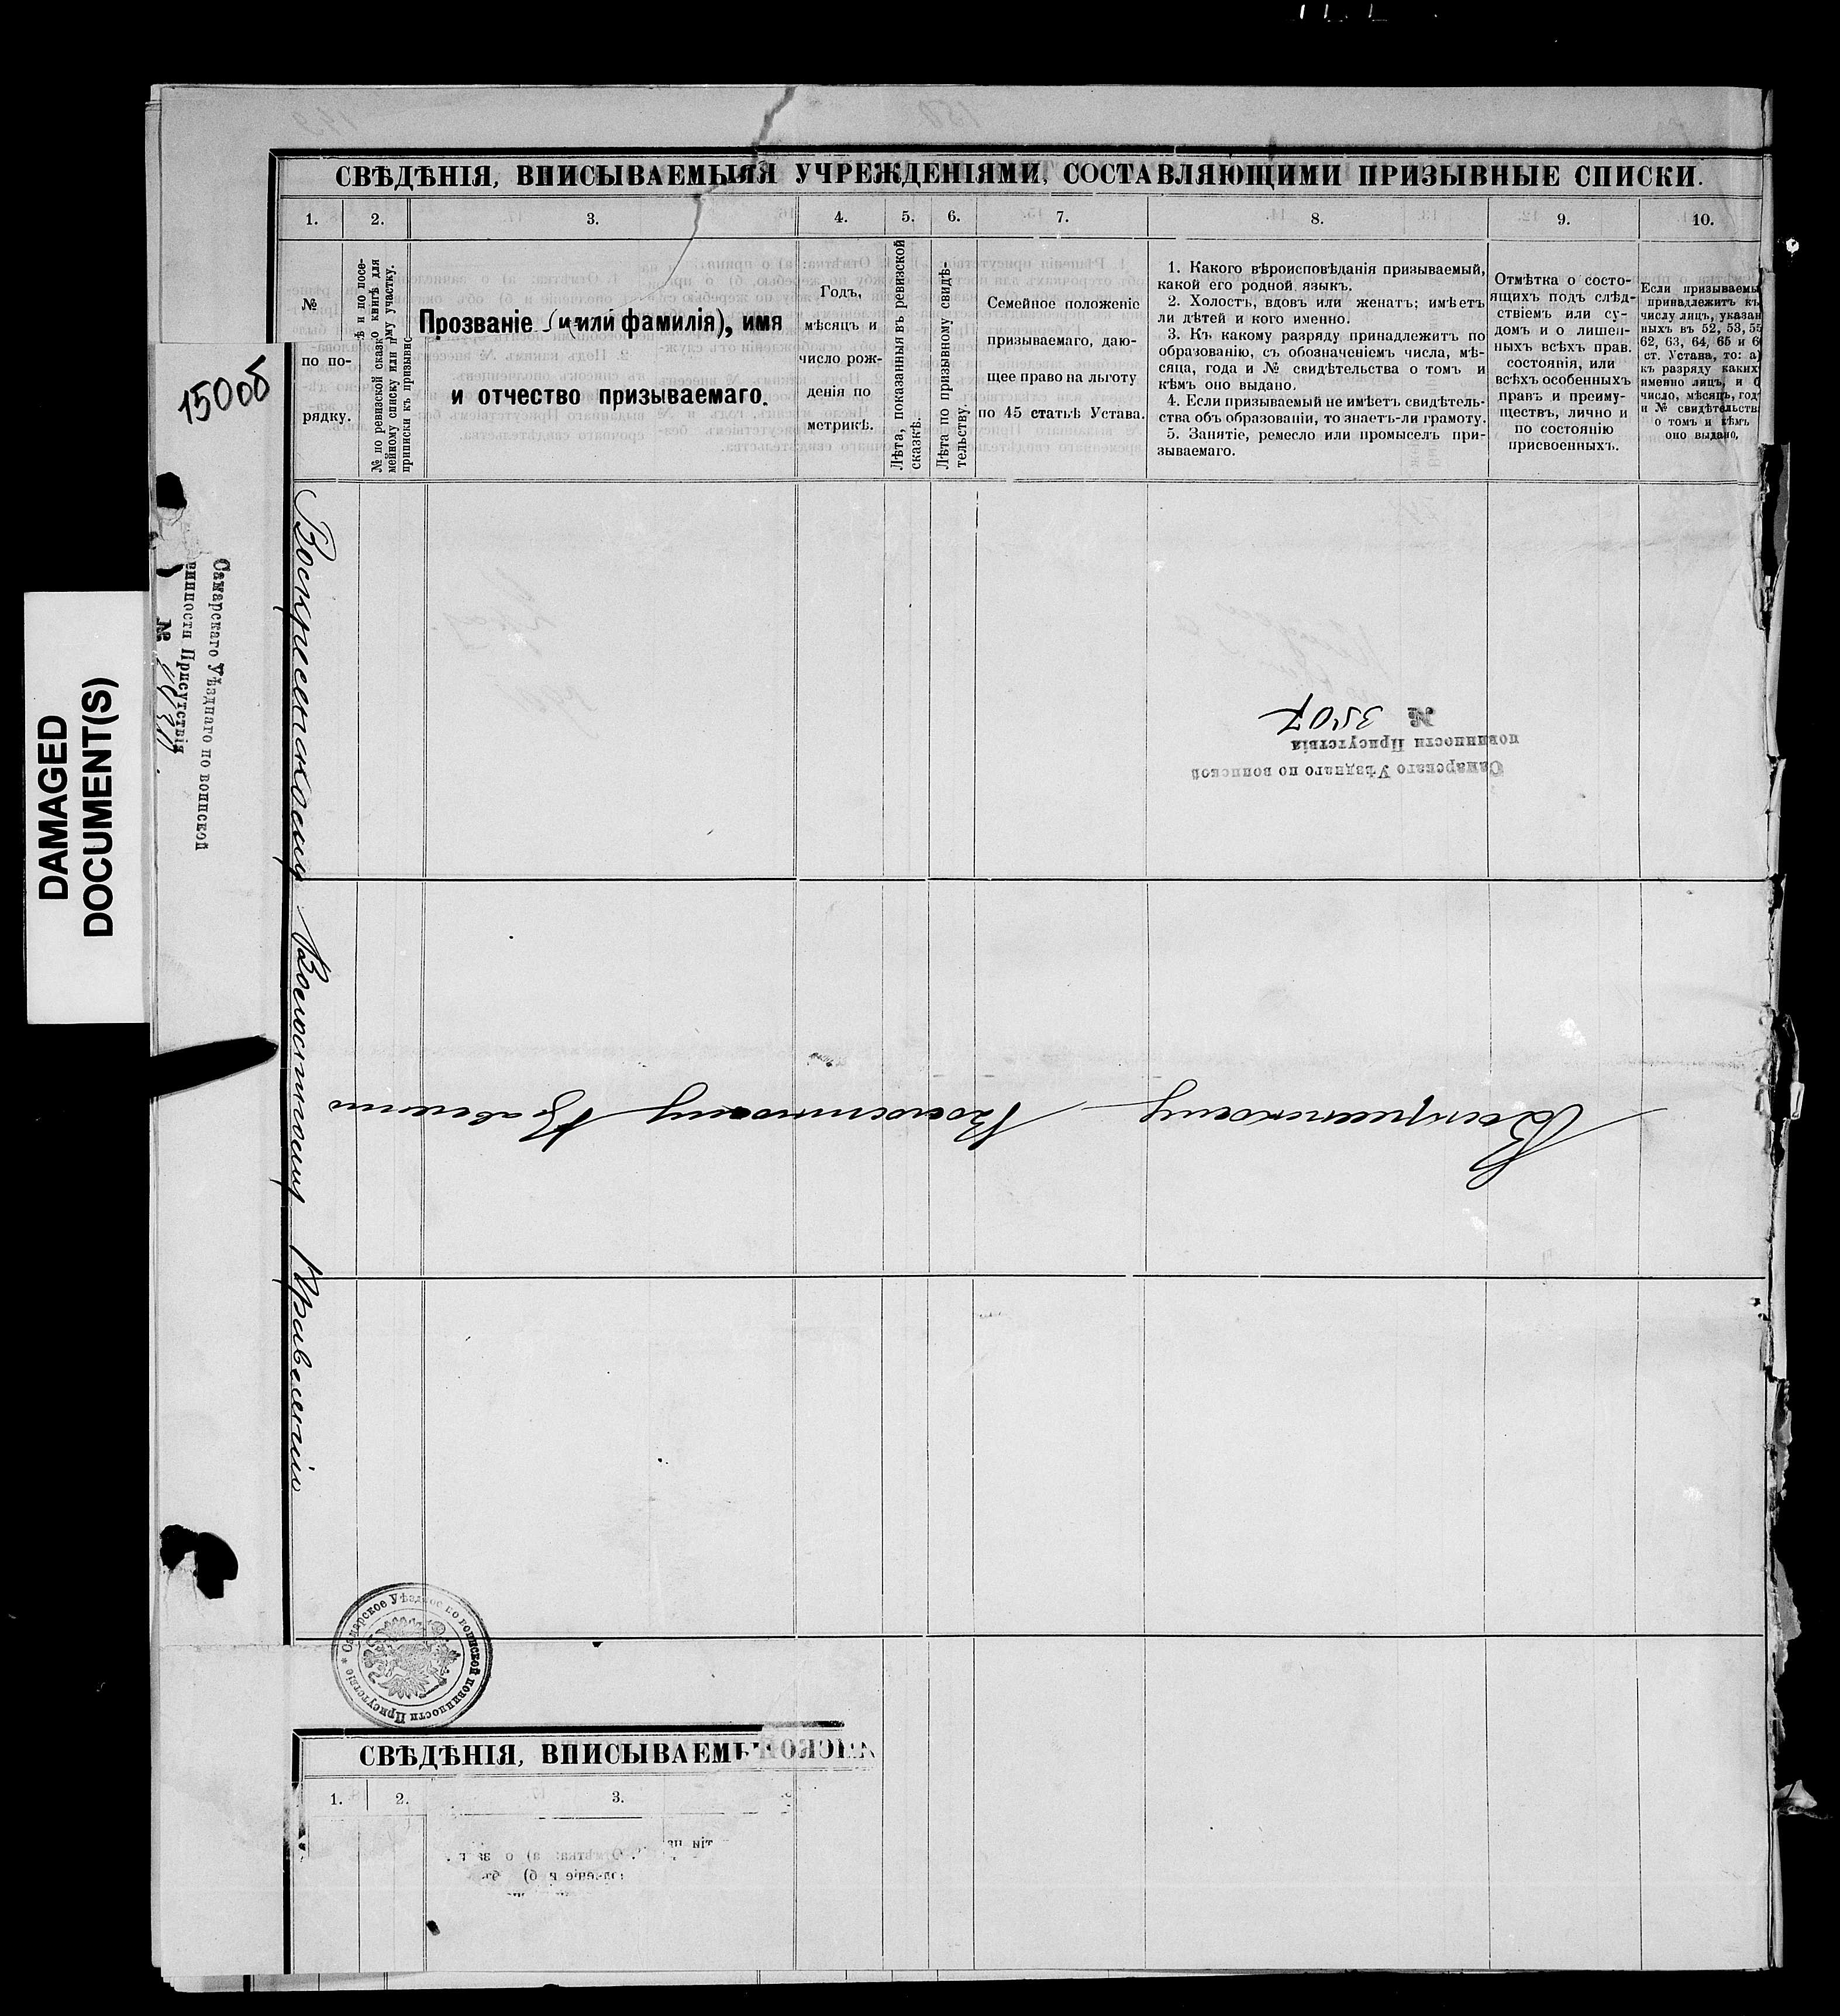 СВѢДѢНІЯ, ВПИСЫВАЕМЫЯ УЧРЕЖДЕНІЯМИ, СОСТАВЛЯЮЩИМИ ПРИЗЫВНЫЕ СПИСКИ.
1. 2. 3. 4. 5. 6. 7. 8. 9. 10.
№
по по-
рядку.
№ по ревизской сказк
мейному списку или п
приписки къ призывно
ѣ и по посе-
о книгѣ для
му участку.
Прозваніе (и или фамилія), имя
и отчество призываемаго.
Годъ,
мѣсяцъ и
число рож-
денія по
метрикѣ.
Лѣта, показанныя въ ревизской
сказкѣ.
Лѣта по призывному свидѣ-
тельству.
Семейное положеніе
призываемаго, даю-
щее право на льготу
по 45 статьѣ Устава.
1. Какого вѣроисповѣданія призываемый,
какой его родной языкъ.
2. Холостъ, вдовъ или женатъ; имѣетъ
ли дѣтей и кого именно.
3. Къ какому разряду принадлежитъ по
образованію, съ обозначеніемъ числа, мѣ-
сяца, года и № свидѣтельства о томъ и
кѣмъ оно выдано.
4. Если призываемый не имѣетъ свидѣтель-
ства объ образованіи, то знаетъ-ли грамоту.
5. Занятіе, ремесло или промыселъ при-
зываемаго.
Отмѣтка о состо-
ящихъ подъ слѣд-
ствіемъ или су-
домъ и о лишен-
ныхъ всѣхъ прав.
состоянія, или
всѣхъ особенныхъ
правъ и преиму-
ществъ, лично и
по состоянію
присвоенныхъ.
Если призываемы
принадлежитъ къ
числу лицъ, указан
ныхъ въ 52, 53, 55
62, 63, 64, 65 и 6
ст. Устава, то: а)
къ разряду какихъ
именно лицъ, и б
число, мѣсяцъ, год
и № свидѣтельства
о томъ и кѣмъ
оно выдано.
150об
Самарскаго Уѣзднаго по воинской
винности Присутствія
№
Воскресенскому Волостному Правленію
DAMAGED
DOCUMENT(S)
Самарскаго Уѣзднаго по воинской
повинности Присутствія
№ 3507
Воскресенскому Волостному Правленію
Самарское Уѣздное по воинской повинности Присутствіе *
СВѢДѢНІЯ, ВПИСЫВАЕМЫ
1. 2. 3.